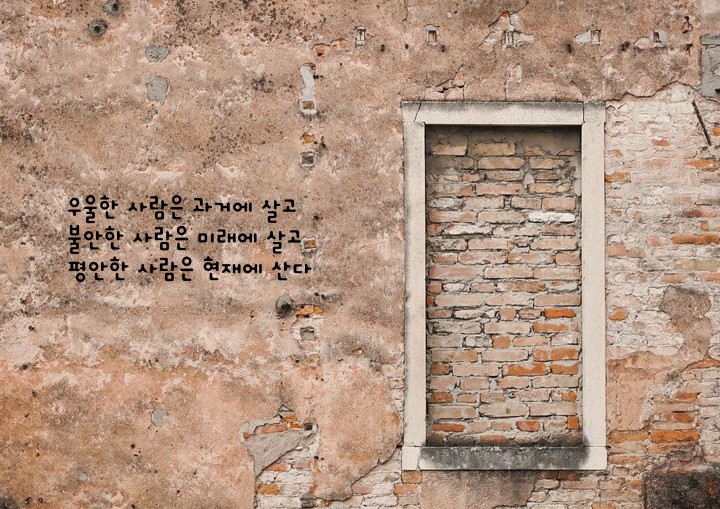 우울한 사람은 과거에 살고
불안한 사람은 미래에 살고
평안한 사람은 현재에 산다